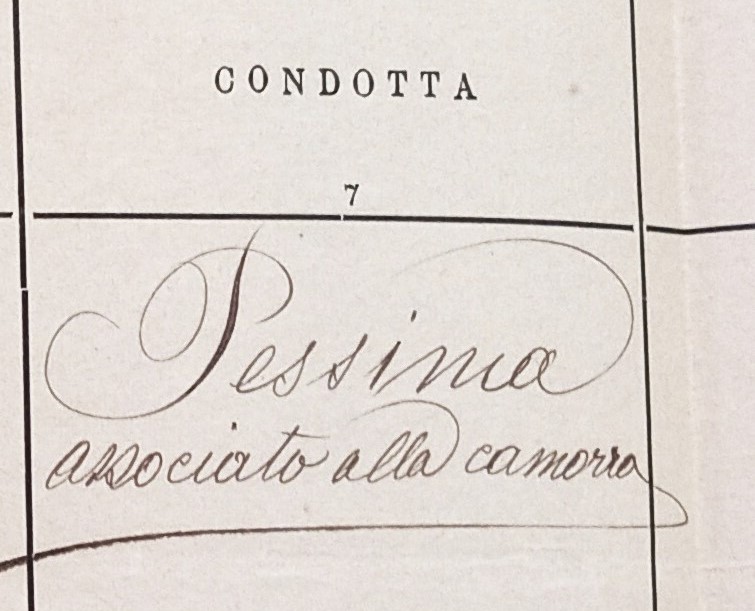 CONDOTTA
7
Pessima
associato alla camorra